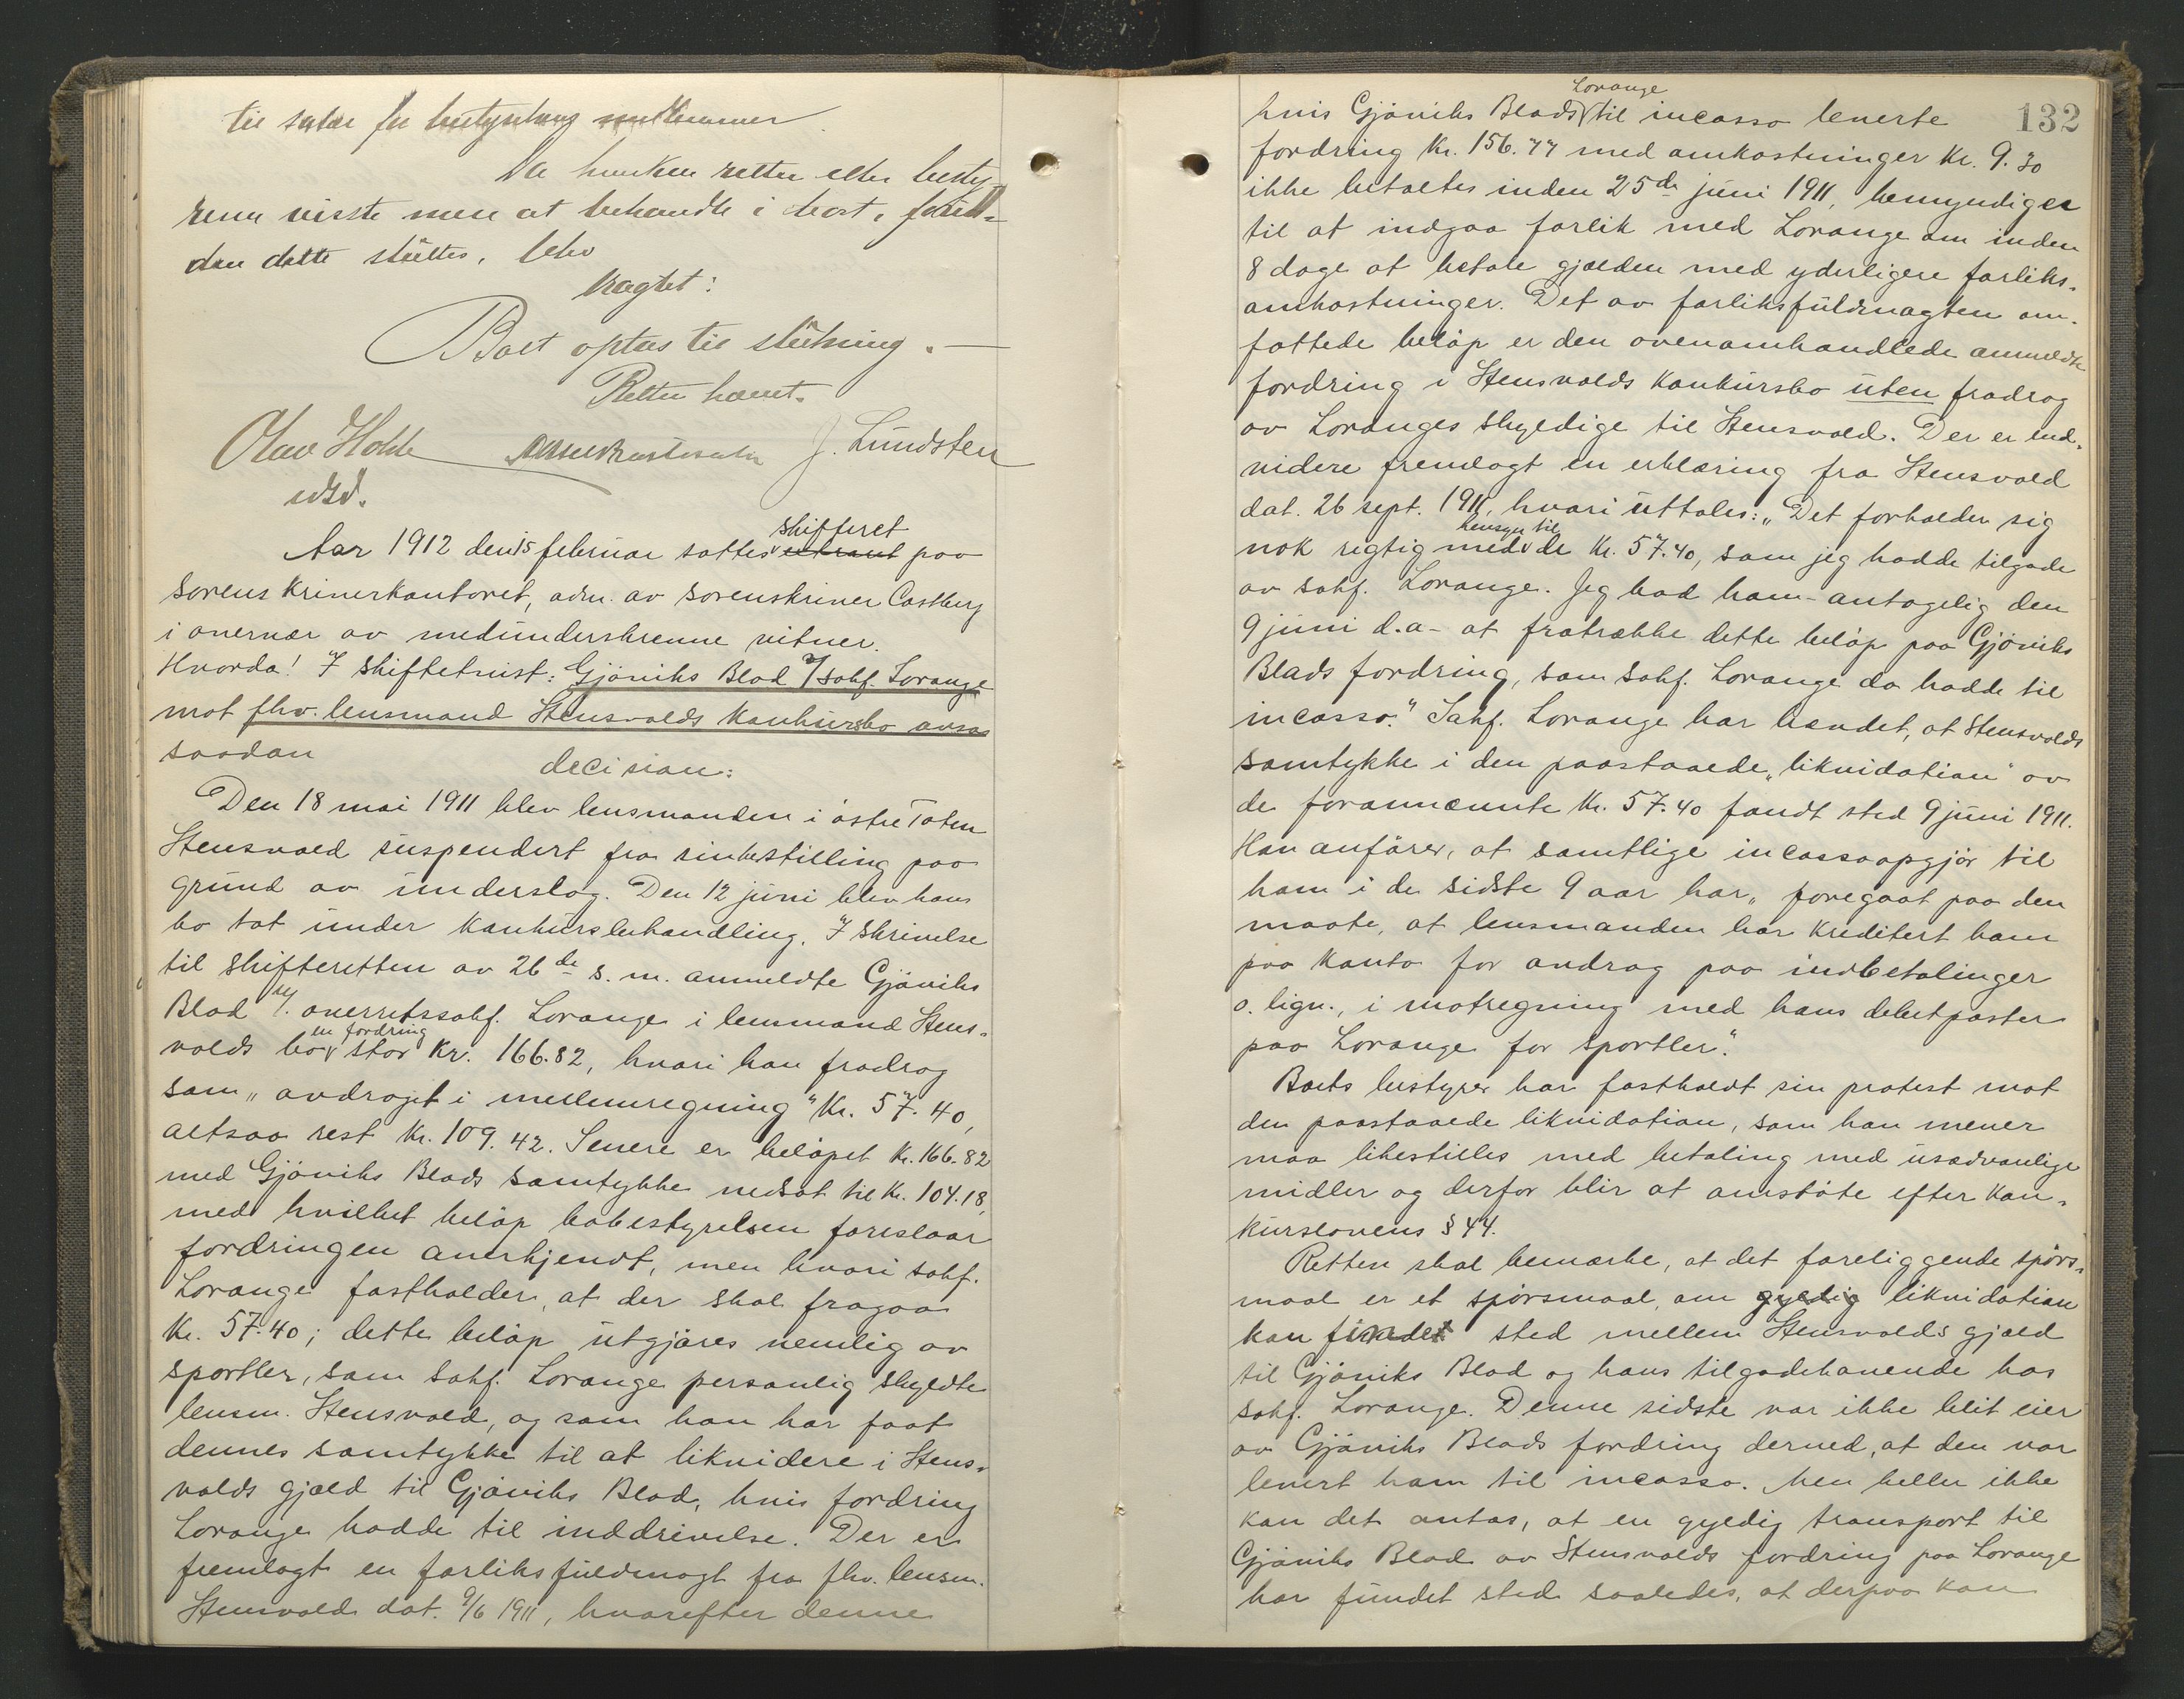 til salær for bestyrelsens medlemmer.
Da hverken retten eller besty-
reren visste mere at behandle i boet, foruden
den dette sluttes, blev
kragtet:
Boet optas til slutning. —
Retten hævet.
Olav Holde J. Lundsten
Aar 1912 den 15 februar sattes skifteret paa
sorenskriverkontoret, adm. av sorenskriver Castberg
i overvær av medunderskrevne vitner.
Hvorda! I skiftetvist: Gjøviks Blad v/ sakf. Lorange
mot fhv. lensmand Stensvolds konkursbo avsas
saadan
decision:
Den 18 mai 1911 blev lensmanden i østre Toten
Stensvold suspendert fra sin bestilling paa
grund av underslag. Den 12 juni blev hans
bo tat under konkursbehandling. I skrivelse
til skifteretten av 26de s. m. anmeldte Gjøviks
Blad v/ overretssakf. Lorange i lensmand Stens-
volds bo en fordring stor Kr. 166.82, hvori han fradrog
som „avdraget i mellemregning" Kr. 57.40,
altsaa rest Kr. 109.42. Senere er beløpet Kr. 166.82
med Gjøviks Blads samtykke nedsat til Kr. 104.18,
med hvilket beløp bobestyrelsen foreslaar
fordringen anerkjendt, men hvori sakf.
Lorange fastholder, at der skal fragaa
Kr. 57.40; dette beløp utgjøres nemlig av
sportler, som sakf. Lorange personlig skyldte
lensm. Stensvold, og som han har faat
dennes samtykke til at likvidere i Stens-
volds gjæld til Gjøviks Blad, hvis fordring
Lorange hadde til inddrivelse. Der er
fremlagt en forliksfuldmagt fra fhv. lensm.
Stensvold dat. 9/6 1911, hvorefter denne
132
hvis Gjøviks Blads Lorange til incasso leverte
fordring Kr. 156.77 med omkostninger Kr. 9.30
ikke betaltes inden 25de juni 1911, bemyndiges
til at indgaa forlik med Lorange om inden
8 dage at betale gjælden med yderligere forliks-
omkostninger. Det av forliksfuldmagten om-
fattede beløp er den ovenomhandlede anmeldte
fordring i Stensvolds konkursbo uten fradrag
av Loranges skyldige til Stensvold. Der er end-
videre fremlagt en erklæring fra Stensvold
dat. 26 sept. 1911, hvori uttales: „Det forholder sig
nok rigtig med hensyn til de Kr. 57.40, som jeg hadde tilgode
av sakf. Lorange. Jeg bad ham – antagelig den
9 juni d.a – at fratrække dette beløp paa Gjøviks
Blads fordring, som sakf. Lorange da hadde til
incasso." Sakf. Lorange har hævdet, at Stensvolds
samtykke i den paastaaede „likvidation" av
de forannævnte Kr. 57.40 fandt sted 9 juni 1911.
Han anfører, at samtlige incassoopgjør til
ham i de sidste 9 aar har „foregaat paa den
maate, at lensmanden har krediteret ham
paa konto for avdrag paa indbetalinger
o. lign., i motregning med hans debetposter
paa Lorange for sportler."
Boets bestyrer har fastholdt sin protest mot
den paastaaede likvidation, som han mener
maa likestilles med betaling med usædvanlige
midler og derfor blir at omstøte efter kon-
kurslovens § 44.
Retten skal bemærke, at det foreliggende spørs-
maal er et spørsmaal, om gyldig likvidation
kan finde sted mellem Stensvolds gjæld
til Gjøviks Blad og hans tilgodehavende hos
sakf. Lorange. Denne sidste var ikke blit eier
av Gjøviks Blads fordring derved, at den var
levert ham til incasso. Men heller ikke
kan det antas, at en gyldig transport til
Gjøviks Blad av Stensvolds fordring paa Lorange
har fundet sted saaledes, at derpaa kan